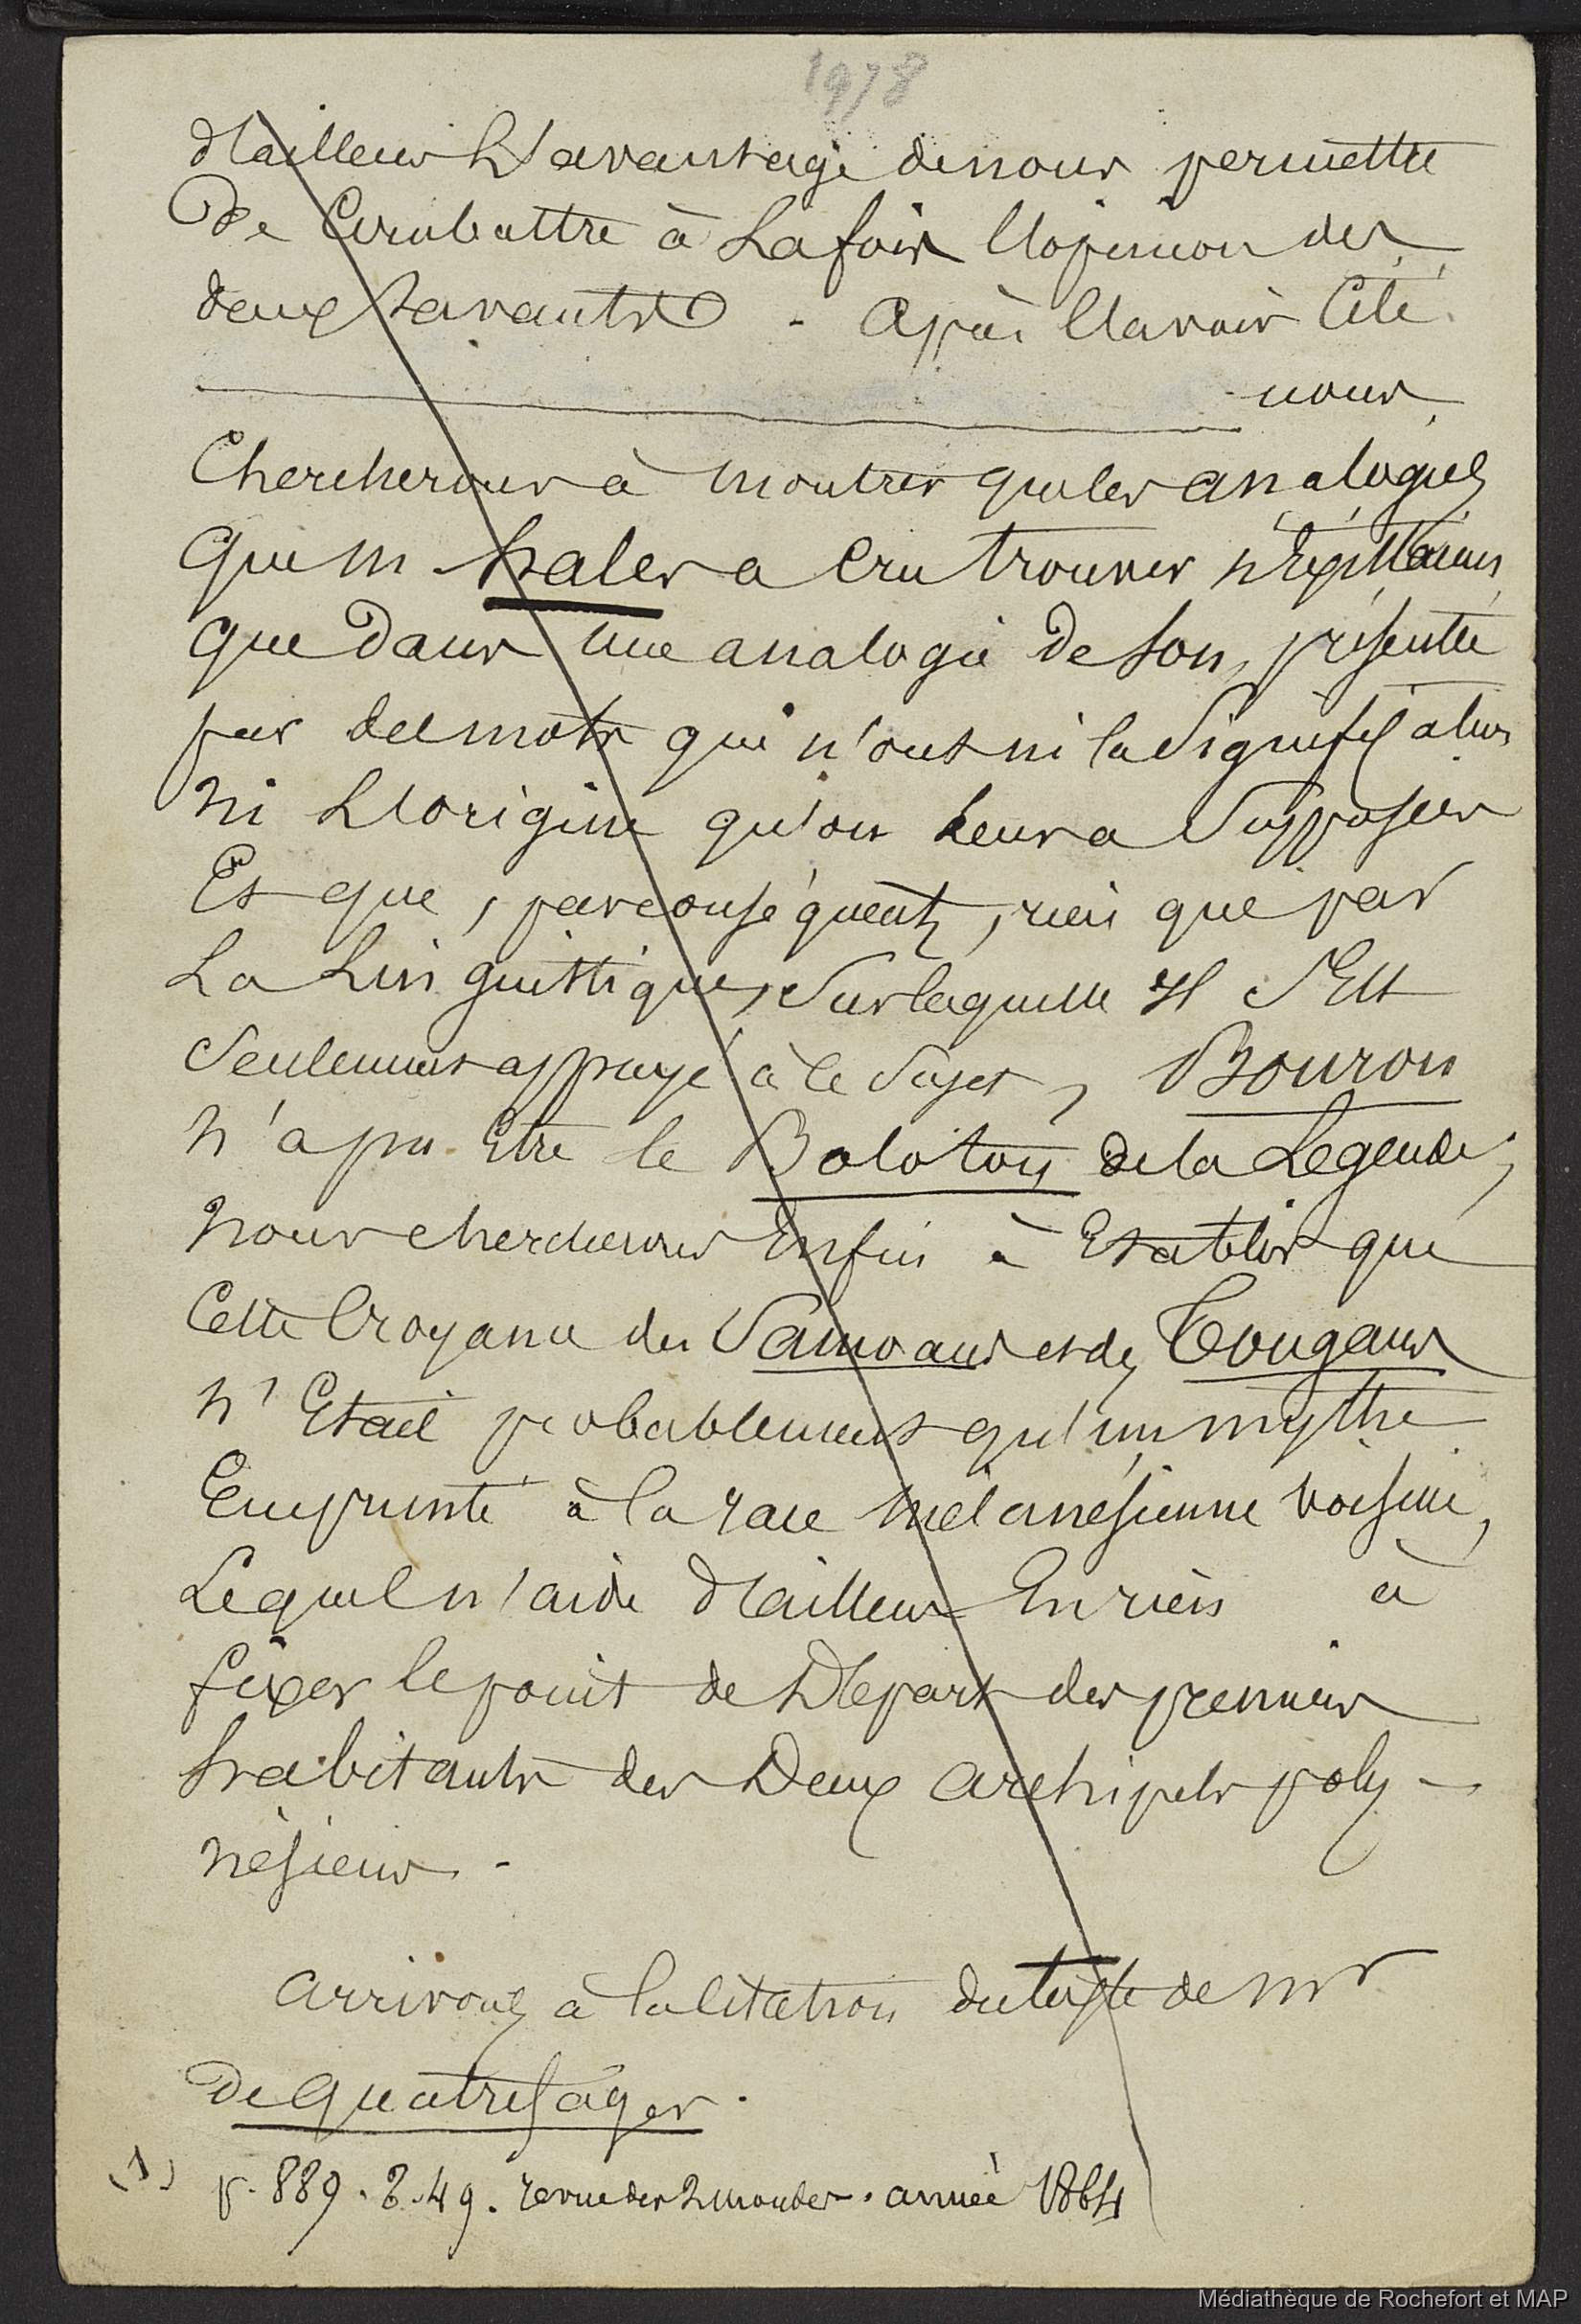 1978
d'ailleurs l'avantage de nous permettre
de combattre à la fois l'opinion des
deux savants. Après l'avoir cité
nous
chercherons à montrer que les analogies
que m. hales a cru trouver n'existaient
que dans une analogie de son, présentée
par des mots qui n'ont ni la signification
ni l'origine qu'on leur a supposées
Et que, par conséquent, rien que par
La linguistique, sur laquelle il s'est
seulement appuyé à ce sujet, Bouron
n'a pu être le Bolotou de la Légende;
nous chercherons enfin à Etablir que
cette croyance des Samoans et des Tongans
n'Etait probablement qu'un mythe
Emprunté à la race mélanésienne voisine,
Lequel n'aide d'ailleurs En rien à
fixer le point de Départ des premiers
habitants des Deux archipels poly-
nésiens.
arrivons à la citation du texte de Mr
de Quatrefages.
(1) p. 889. t. 49. revue des 2 mondes. année 1864
Médiathèque de Rochefort et MAP